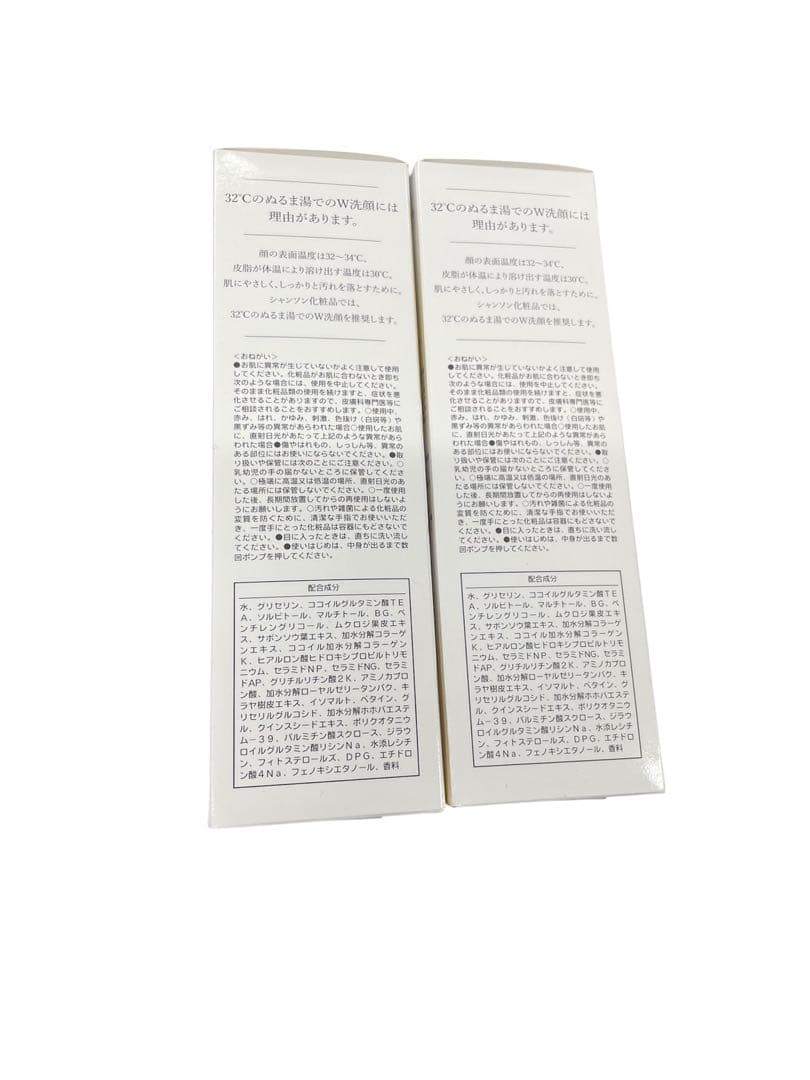 32℃のぬるま湯でのW洗顔には
理由があります。
顔の表面温度は32〜34℃、
皮脂が体温により溶け出す温度は30℃。
肌にやさしく、しっかりと汚れを落とすために。
シャンソン化粧品では、
32℃のぬるま湯でのW洗顔を推奨します。
＜おねがい＞
●お肌に異常が生じていないかよく注意して使用
してください。化粧品がお肌に合わないとき即ち
次のような場合には、使用を中止してください。
そのまま化粧品類の使用を続けますと、症状を悪
化させることがありますので、皮膚科専門医等に
ご相談されることをおすすめします。○使用中、
赤み、はれ、かゆみ、刺激、色抜け（白斑等）や
黒ずみ等の異常があらわれた場合○使用したお肌
に、直射日光があたって上記のような異常があら
われた場合●傷やはれもの、しっしん等、異常の
ある部位にはお使いにならないでください。●取
り扱いや保管には次のことにご注意ください。○
乳幼児の手の届かないところに保管してください
。○極端に高温又は低温の場所、直射日光のあ
たる場所には保管しないでください。○一度使用
した後、長期間放置してからの再使用はしないよ
うにお願いします。○汚れや雑菌による化粧品の
変質を防ぐために、清潔な手指でお使いいただ
き、一度手にとった化粧品は容器にもどさないで
ください。●目に入ったときは、直ちに洗い流し
てください。●使いはじめは、中身が出るまで数
回ポンプを押してください。
配合成分
水、グリセリン、ココイルグルタミン酸TE
A、ソルビトール、マルチトール、BG、ペ
ンチレングリコール、ムクロジ果皮エキ
ス、サボンソウ葉エキス、加水分解コラーゲ
ンエキス、ココイル加水分解コラーゲン
K、ヒアルロン酸ヒドロキシプロピルトリモ
ニウム、セラミドNP、セラミドNG、セラミ
ドAP、グリチルリチン酸2K、アミノカプロ
ン酸、加水分解ローヤルゼリータンパク、キ
ラヤ樹皮エキス、イソマルト、ベタイン、グ
リセリルグルコシド、加水分解ホホバエステ
ル、クインスシードエキス、ポリクオタニウ
ム－39、パルミチン酸スクロース、ジラウ
ロイルグルタミン酸リシンNa、水添レシチ
ン、フィトステロールズ、DPG、エチドロ
ン酸4Na、フェノキシエタノール、香料
32℃のぬるま湯でのW洗顔には
理由があります。
顔の表面温度は32〜34℃、
皮脂が体温により溶け出す温度は30℃。
肌にやさしく、しっかりと汚れを落とすために。
シャンソン化粧品では、
32℃のぬるま湯でのW洗顔を推奨します。
＜おねがい＞
●お肌に異常が生じていないかよく注意して使用
してください。化粧品がお肌に合わないとき即ち
次のような場合には、使用を中止してください。
そのまま化粧品類の使用を続けますと、症状を悪
化させることがありますので、皮膚科専門医等に
ご相談されることをおすすめします。○使用中、
赤み、はれ、かゆみ、刺激、色抜け（白斑等）や
黒ずみ等の異常があらわれた場合○使用したお肌
に、直射日光があたって上記のような異常があら
われた場合●傷やはれもの、しっしん等、異常の
ある部位にはお使いにならないでください。●取
り扱いや保管には次のことにご注意ください。○
乳幼児の手の届かないところに保管してください
。○極端に高温又は低温の場所、直射日光のあ
たる場所には保管しないでください。○一度使用
した後、長期間放置してからの再使用はしないよ
うにお願いします。○汚れや雑菌による化粧品の
変質を防ぐために、清潔な手指でお使いいただ
き、一度手にとった化粧品は容器にもどさないで
ください。●目に入ったときは、直ちに洗い流し
てください。●使いはじめは、中身が出るまで数
回ポンプを押してください。
配合成分
水、グリセリン、ココイルグルタミン酸TE
A、ソルビトール、マルチトール、BG、ペ
ンチレングリコール、ムクロジ果皮エキ
ス、サボンソウ葉エキス、加水分解コラーゲ
ンエキス、ココイル加水分解コラーゲン
K、ヒアルロン酸ヒドロキシプロピルトリモ
ニウム、セラミドNP、セラミドNG、セラミ
ドAP、グリチルリチン酸2K、アミノカプロ
ン酸、加水分解ローヤルゼリータンパク、キ
ラヤ樹皮エキス、イソマルト、ベタイン、グ
リセリルグルコシド、加水分解ホホバエステ
ル、クインスシードエキス、ポリクオタニウ
ム－39、パルミチン酸スクロース、ジラウ
ロイルグルタミン酸リシンNa、水添レシチ
ン、フィトステロールズ、DPG、エチドロ
ン酸4Na、フェノキシエタノール、香料